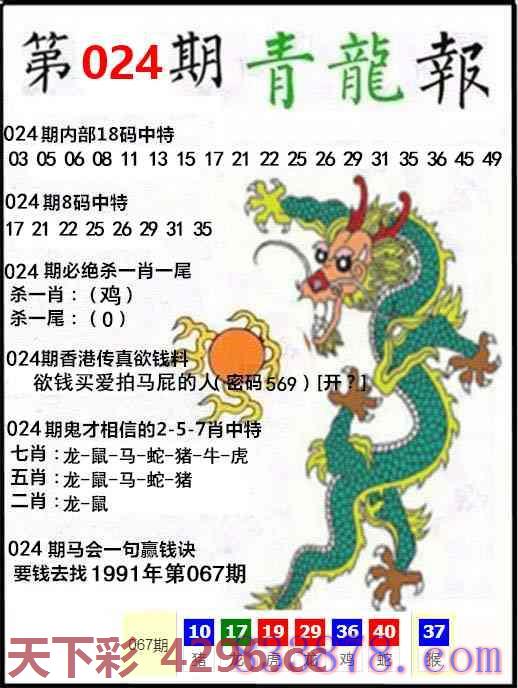 第024期青龍報
024期内部18码中特
03 05 06 08 11 13 15 17 21 22 25 26 29 31 35 36 45 49
024期8码中特
17 21 22 25 26 29 31 35
024 期必绝杀一肖一尾
杀一肖：（鸡）
杀一尾：（0）
024期香港传真欲钱料
欲钱买爱拍马屁的人(密码569) [开？]
024期鬼才相信的2-5-7肖中特
七肖：龙-鼠-马-蛇-猪-牛-虎
五肖：龙-鼠-马-蛇-猪
二肖：龙-鼠
024 期马会一句赢钱诀
要钱去找1991年第067期
067期 10 17 19 29 36 40 37
猪 龙 虎 龙 鸡 蛇 猴
天下彩 4296.cc